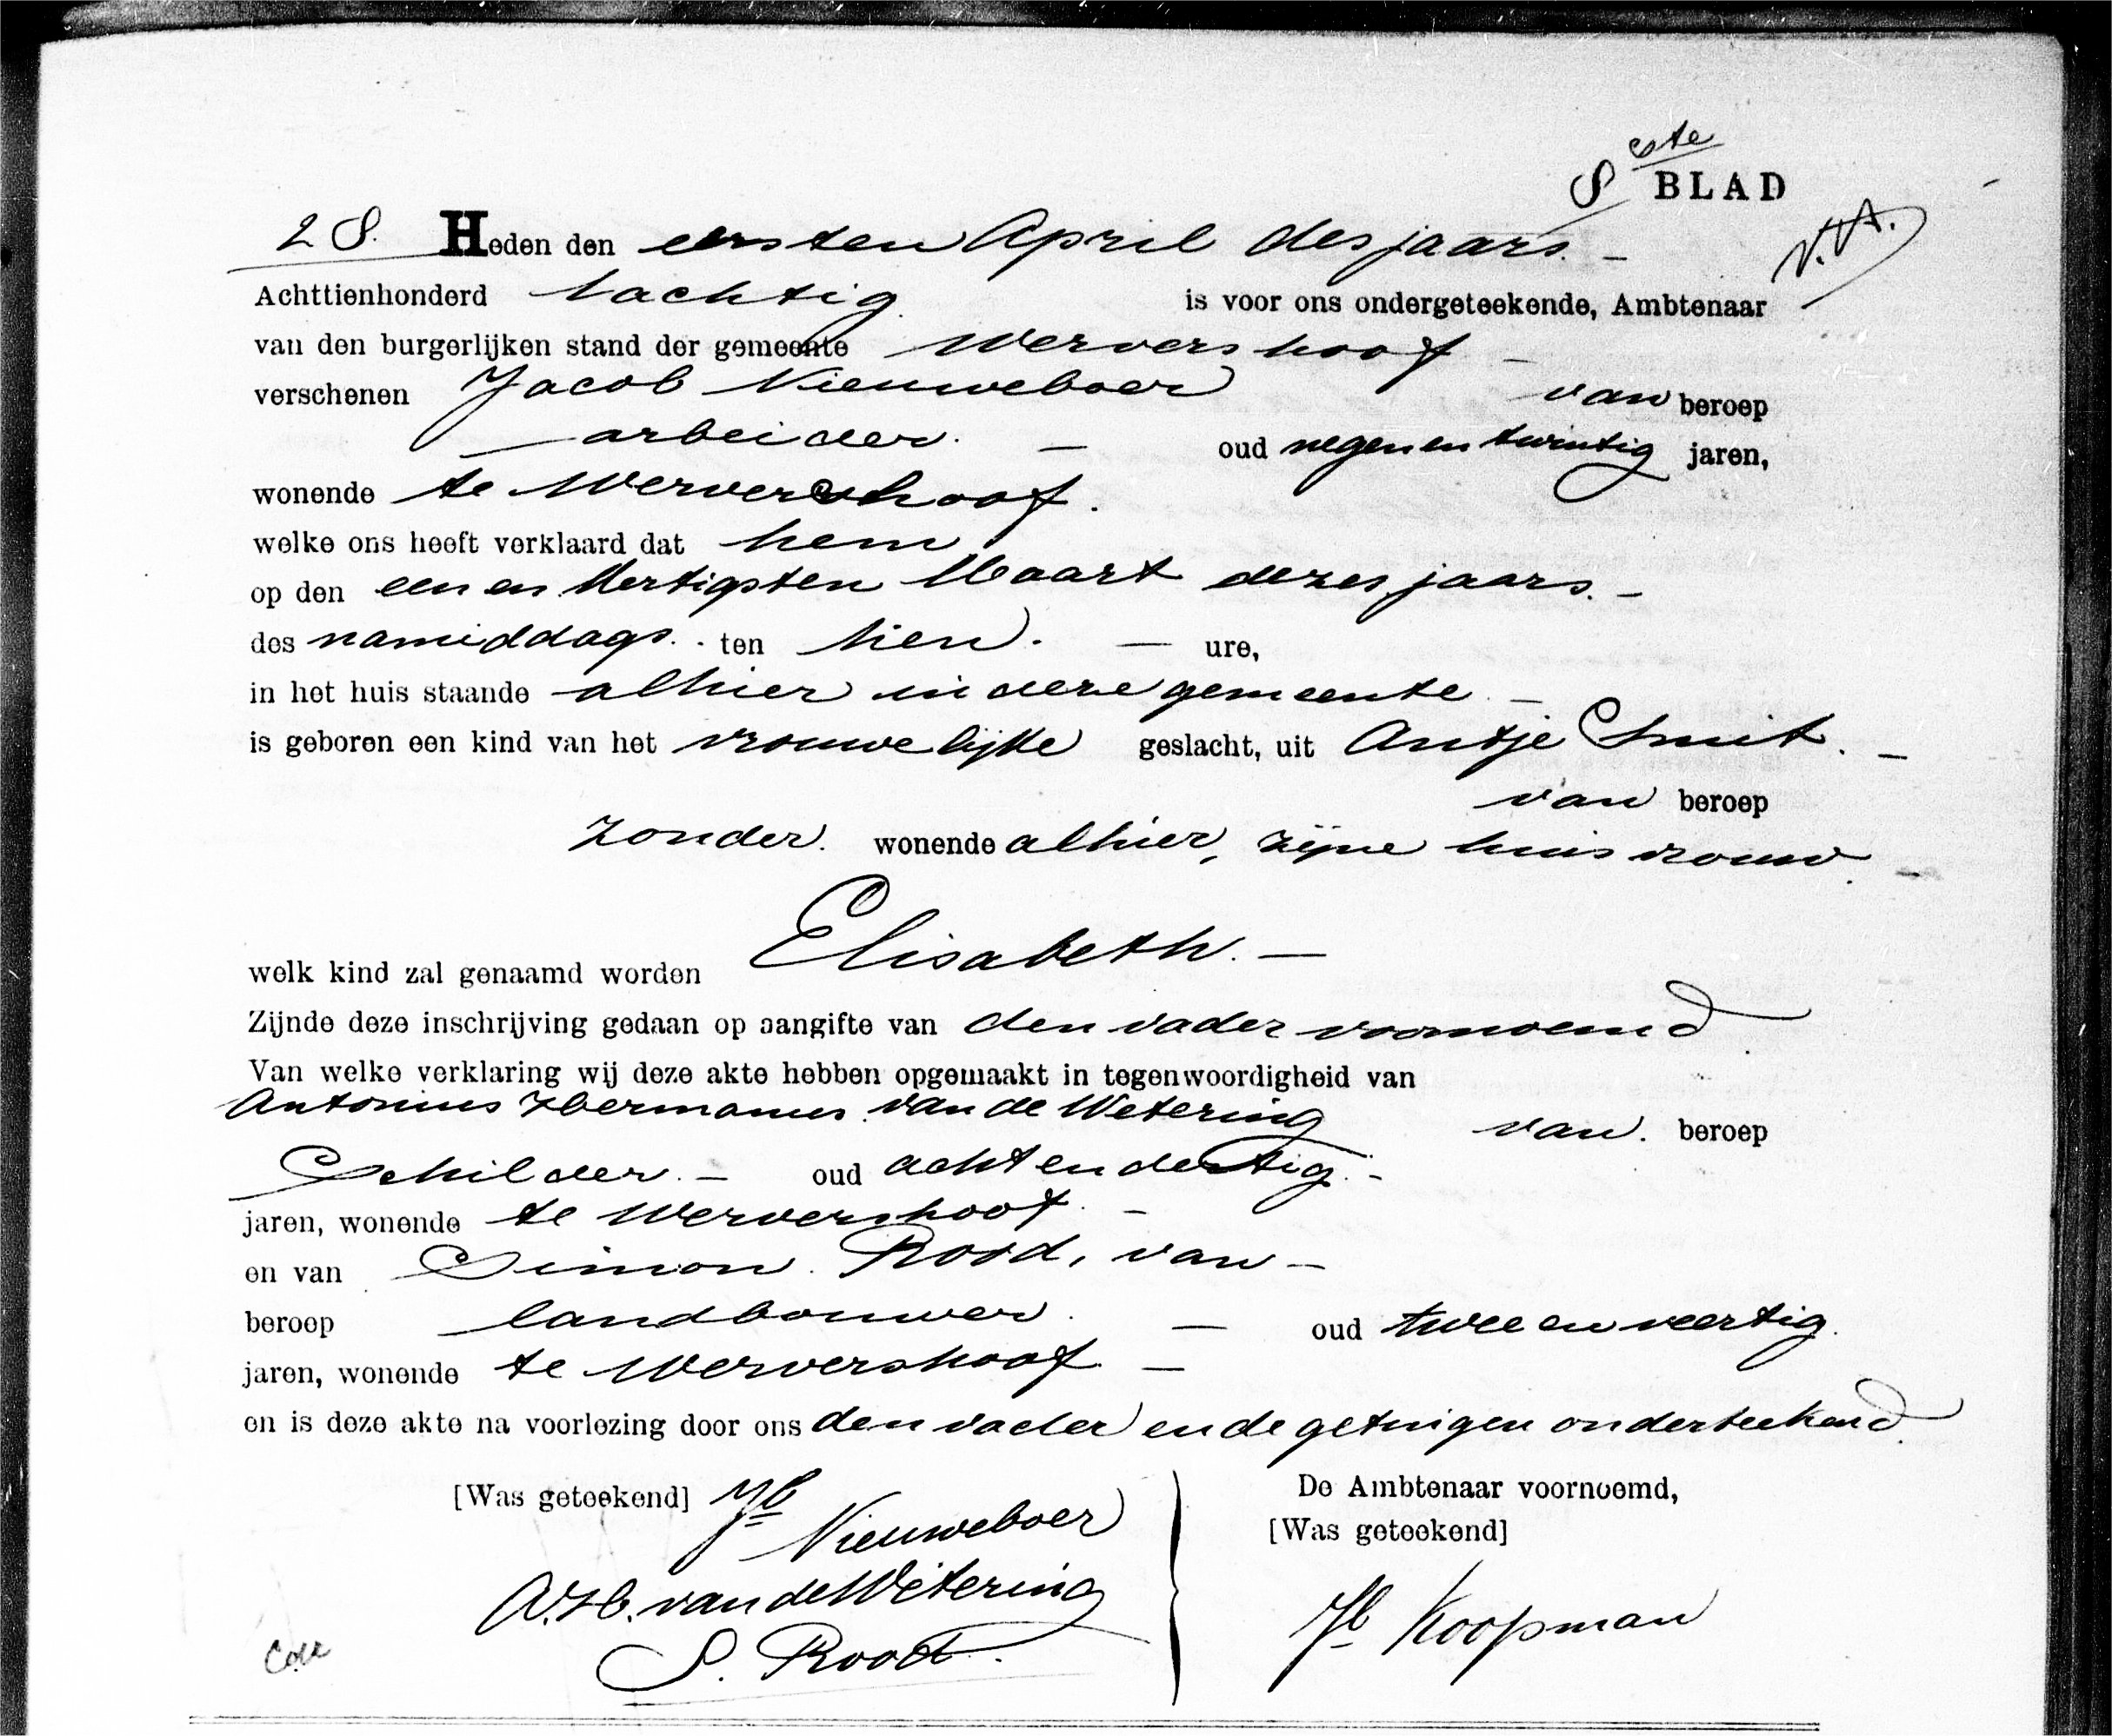 8ste BLAD
N.A.
28. Heden den eersten April des jaars. –
Achttienhonderd tachtig. is voor ons ondergeteekende, Ambtenaar
van den burgerlijken stand der gemeente Wervershoof –
verschenen Jacob Nieuweboer van beroep
arbeider. – oud negen en twintig jaren,
wonende te Wervershoof.
welke ons heeft verklaard dat hem
op den een en dertigsten Maart dezes jaars. –
des namiddags. ten tien. – ure,
in het huis staande alhier in deze gemeente –
is geboren een kind van het vrouwelijke geslacht, uit Antje Smit. –
van beroep
zonder. wonende alhier, zijne huisvrouw. –
welk kind zal genaamd worden Elisabeth. –
Zijnde deze inschrijving gedaan op aangifte van den vader voornoemd.
Van welke verklaring wij deze akte hebben opgemaakt in tegenwoordigheid van
Antonius Hermanus van de Wetering van. beroep
Schilder. – oud acht en dertig. –
jaren, wonende te Wervershoof. –
en van Simon Rood, van –
beroep landbouwer. – oud twee en veertig.
jaren, wonende te Wervershoof. –
en is deze akte na voorlezing door ons den vader en de getuigen onderteekend.
[Was geteekend] Jb Nieuweboer
A.H. van de Wetering
S. Rood.
De Ambtenaar voornoemd,
[Was geteekend]
Jb Koopman